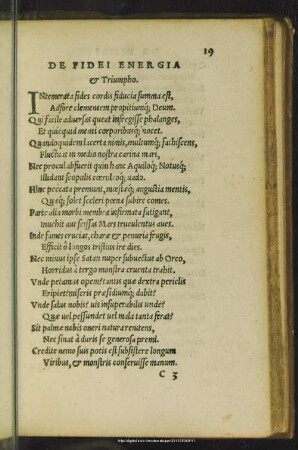 19
DE FIDEI ENERGIA
& Triumpho.
INtemerata fides cordis fiducia summa est,
Adfore clementem propitiumq; Deum.
Qui facile aduersas queat infregisse phalanges,
Et quicquid menti corporibusq; nocet.
Quandoquidem lacerta nimis, multumq; fathiscens,
Fluctuat in medio nostra carina mari,
Nec procul abfuerit quin hanc Aquiloq; Notusq;
Illidant scopulis cœruleoq; uado.
Hinc peccata premunt, mœstæq; angustia mentis,
Quæq; solet sceleri pœna subire comes.
Parte alia morbi membra infirmata fatigant,
Inuehit aut scissas Mars truculentus aues.
Inde fames cruciat, charæ & penuria frugis,
Efficit ô longos tristius ire dies.
Nec minus ipse Satan nuper subuectus ab Orco,
Horridus à tergo monstra cruenta trahit.
Vnde petamus opem? tantis quæ dextra periclis
Eripiet? miseris præsidiumq; dabit?
Vnde salus nobis? uis insuperabilis unde?
Quæ uel pessundet uel mala tanta ferat?
Sit palmæ nobis oneri natura renitens,
Nec sinat à duris se generosa premi.
Credite nemo suis potis est subsistere longum
Viribus, & monstris conseruisse manum.
C 3